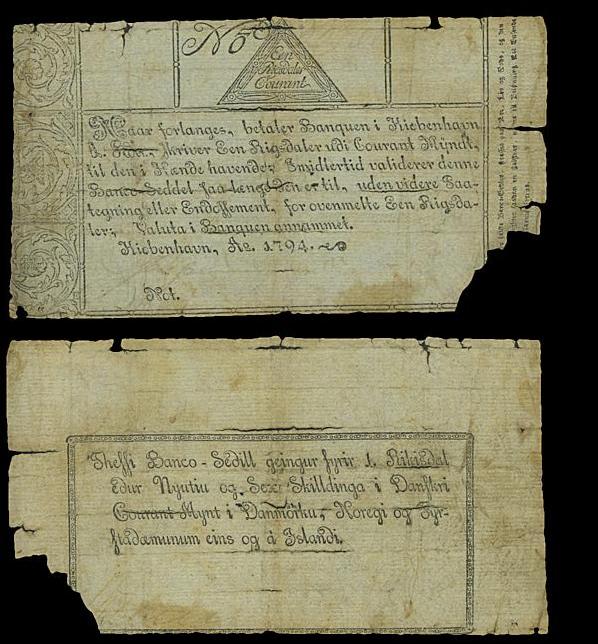 No
Een
Rigsdaler
Courant
Naar forlanges, betaler Banquen i Kiøbenhavn
skriver Een Rigsdaler udi Courant Myndt,
til den i Hænde havende; Imidlertid validerer denne
Banco-Seddel saa længe den er til, uden videre Paa-
tegning eller Endossement, for ovenmelte Een Rigsda-
ler; Valuta i Banquen annammet.
Kiøbenhavn, Ao. 1794.
Not.
Thessi Banco-Sedill geingur fyrir 1. Rikisdal
edur Nyutiu og Sex Skilldinga i Danskri
Courant Mynt i Danmörku, Noregi og Fyr-
stadæmunum eins og á Islandi.